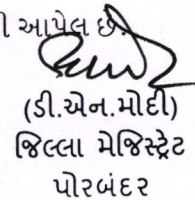 આપેલ છે.
(ડી.એન.મોદી)
જિલ્લા મેજિસ્ટ્રેટ
પોરબંદર